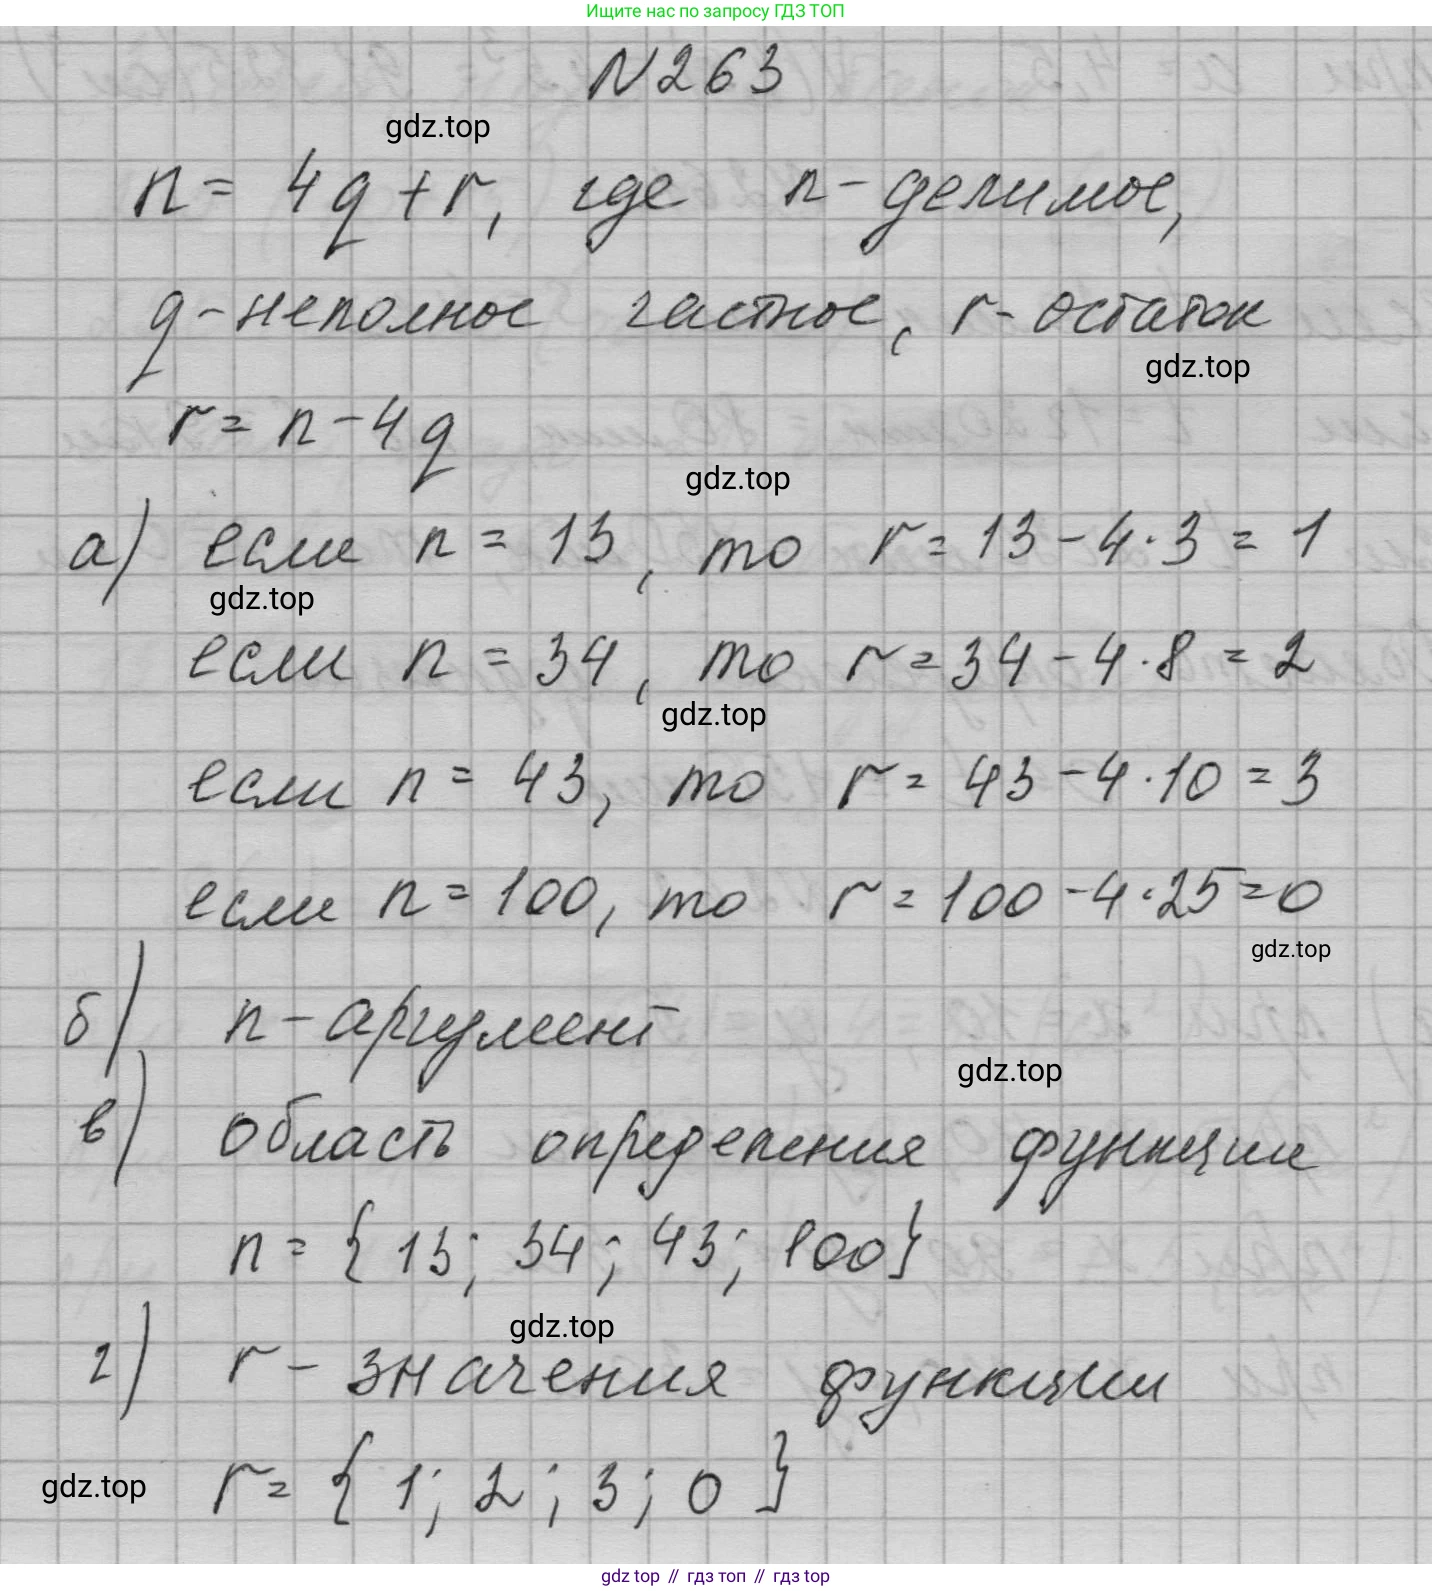 Ищите нас по запросу ГДЗ ТОП
N263
gdz.top
n = 4q + r, где n - делимое,
q - неполное частное, r - остаток
gdz.top
r = n - 4q
gdz.top
а) если n = 13, то r = 13 - 4·3 = 1
gdz.top
если n = 34, то r = 34 - 4·8 = 2
gdz.top
если n = 43, то r = 43 - 4·10 = 3
если n = 100, то r = 100 - 4·25 = 0
gdz.top
б) n - аргумент
gdz.top
в) область определения функции
n = {13; 34; 43; 100}
gdz.top
г) r - значения функции
gdz.top
r = {1; 2; 3; 0}
gdz top // гдз топ // гдз top